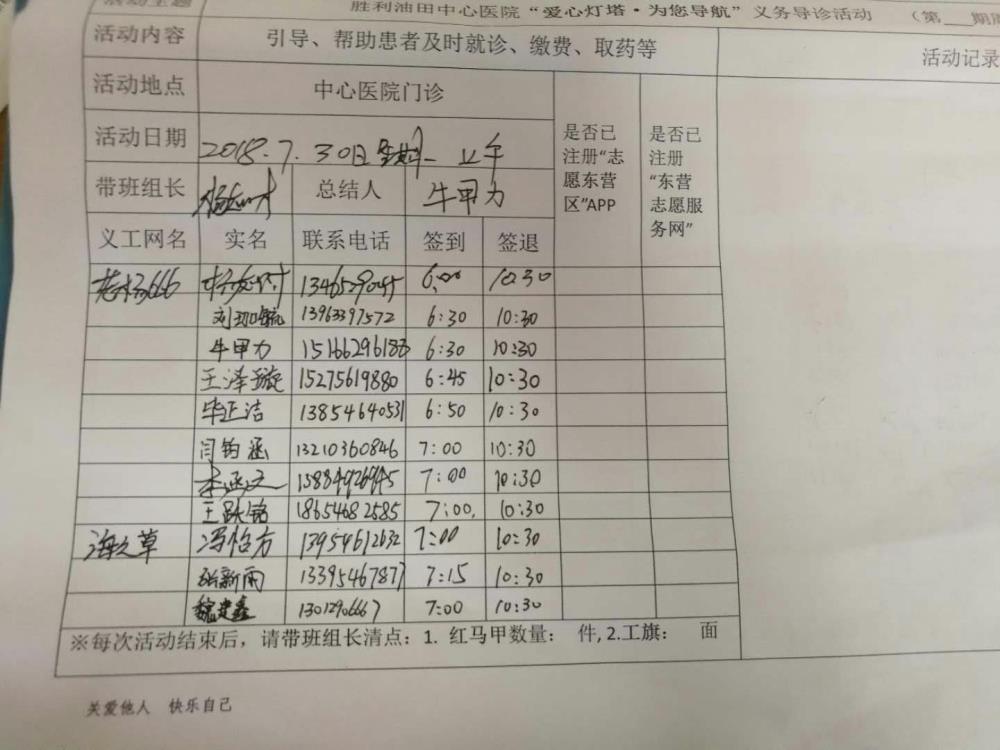 活动主题 胜利油田中心医院“爱心灯塔·为您导航”义务导诊活动 （第 期
活动内容 引导、帮助患者及时就诊、缴费、取药等 活动记录
活动地点 中心医院门诊
活动日期 2018.7.30日星期一 上午
是否已注册“志愿东营区”APP
是否已注册“东营志愿服务网”
带班组长 总结人 牛甲力
义工网名 实名 联系电话 签到 签退
6:00 10:30
13963397572 6:30 10:30
牛甲力 15166296188 6:30 10:30
王泽璇 15275619880 6:45 10:30
毕正洁 13854640531 6:50 10:30
闫钧涵 13210360846 7:00 10:30
李涵文 7:00 10:30
王跃铭 18654682585 7:00 10:30
海之草 冯怡方 13954612632 7:00 10:30
张新雨 13395467877 7:15 10:30
7:00 10:30
※每次活动结束后，请带班组长清点：1. 红马甲数量： 件, 2.工旗： 面
关爱他人 快乐自己